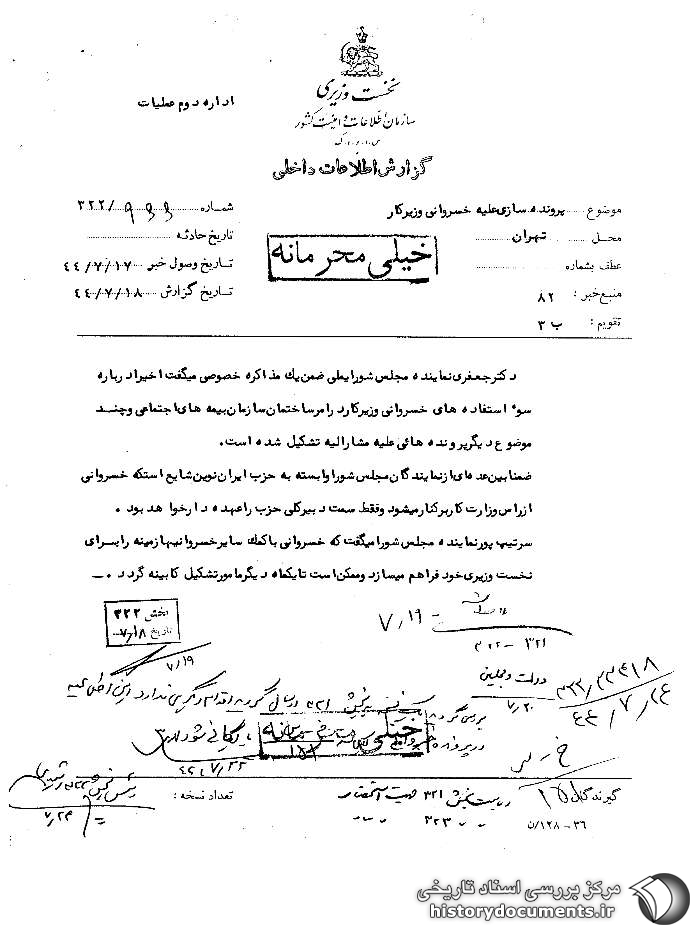 نخست وزیری
سازمان اطلاعات و امنیت کشور
س.ا.و.ا.ک
اداره دوم عملیات
گزارش اطلاعات داخلی
موضوع ..... پرونده سازی علیه خسروانی وزیرکار
شماره ۳۲۲/۹۳۳
محل ..... تهران .....
تاریخ حادثه
خیلی محرمانه
عطف بشماره
تاریخ وصول خبر ۴۴/۷/۱۷
منبع خبر : ۸۲
تاریخ گزارش ۴۴/۷/۱۸
تقویم : ب ۳
دکتر جعفری نماینده مجلس شورایملی ضمن یك مذاکره خصوصی میگفت اخیرا درباره
سوء استفاده های خسروانی وزیرکار در امر ساختمان سازمان بیمه های اجتماعی و چند
موضوع دیگر پرونده هائی علیه مشارالیه تشکیل شده است.
ضمنا بین عده ای از نمایندگان مجلس شورا وابسته به حزب ایران نوین شایع استکه خسروانی
از راس وزارت کار برکنار میشود و فقط سمت دبیرکلی حزب را عهده دار خواهد بود .
سرتیپ پور نماینده مجلس شورا میگفت که خسروانی با کمك سایر خسروانیها زمینه را برای
نخست وزیری خود فراهم میسازد و ممکن است تا یکماه دیگر مامور تشکیل کابینه گردد .
۷/۱۹
۳۲۱ - ۳۲۲
بخش ۳۲۲
تاریخ ۷/۱۸
۷/۱۹
دولت و مجلسین
۷/۲۰
۳۲۲/۳۳۴۱۸
۴۴/۷/۲۴
خیلی محرمانه
۴۴/۷/۲۲
گیرندگان
ریاست بخش ۳۲۱ جهت استحضار
۳۲۳ " "
تعداد نسخه :
۷/۲۴
۳۶-۱۲۸/ن
مرکز بررسی اسناد تاریخی
historydocuments.ir